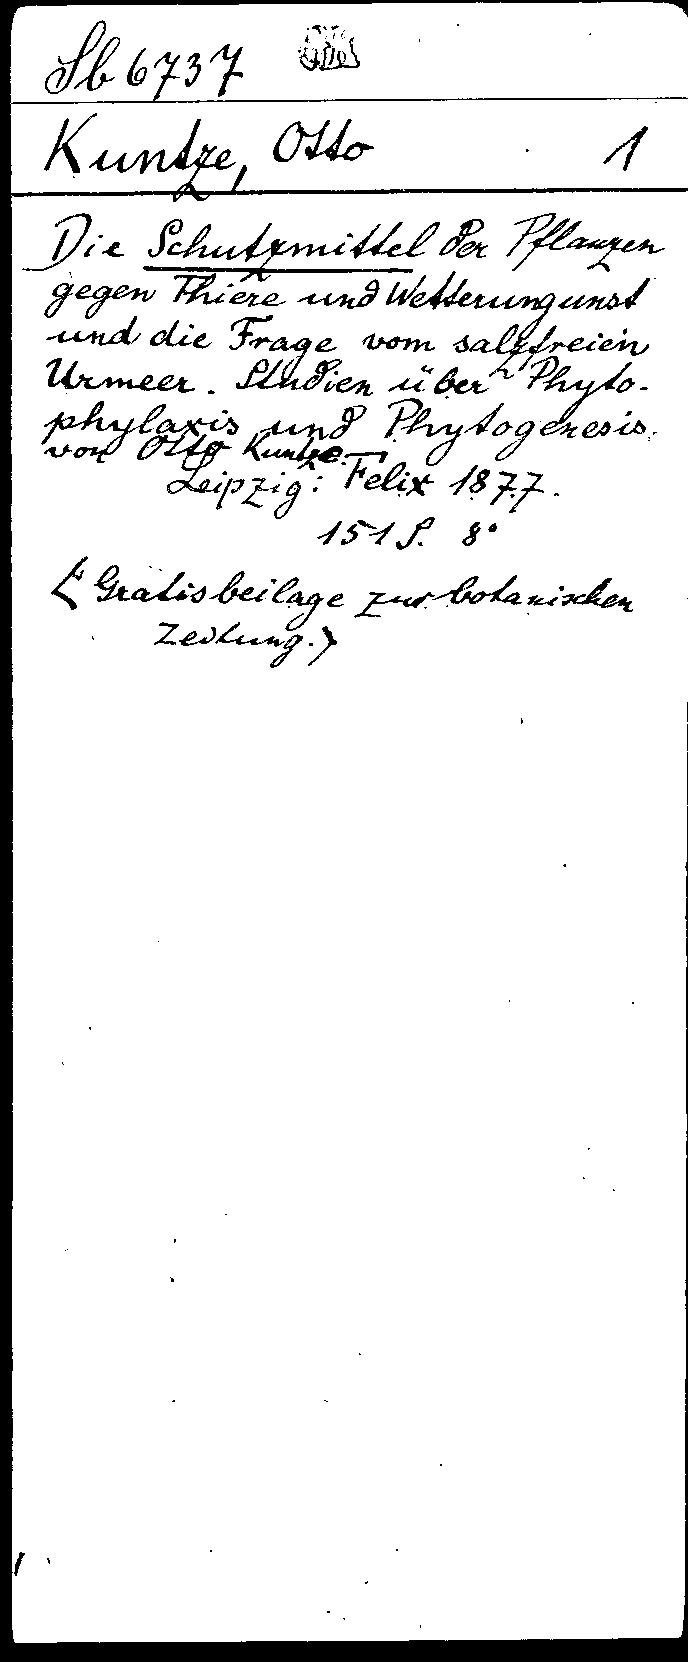 Sb 6737
Kuntze, Otto 1
Die Schutzmittel der Pflanzen
gegen Thiere und Wetterungunst
und die Frage vom salzfreien
Urmeer. Studien über Phyto-
phylaxis und Phytogenesis.
von Otto Kuntze.
Leipzig: Felix 1877.
151 S. 8°
<Gratisbeilage zur botanischen
Zeitung.>